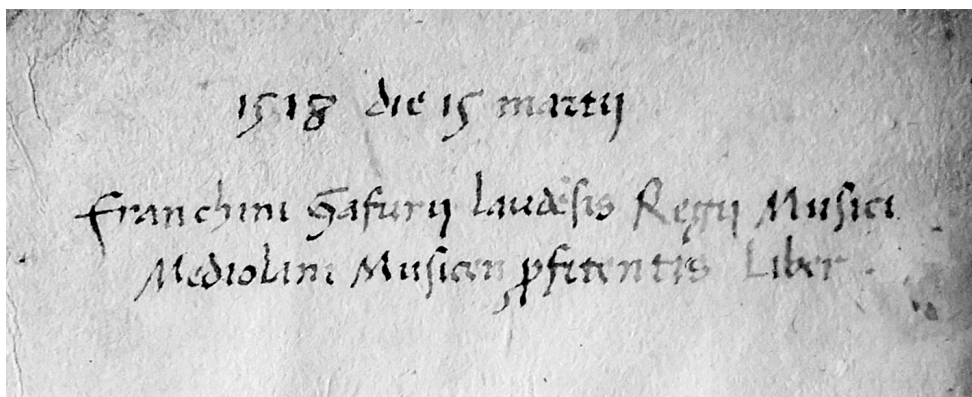 1518 die 15 martij
Franchini Gafurij laudēsis Regij Musici
Mediolini Musicen ꝓfitentis Liber